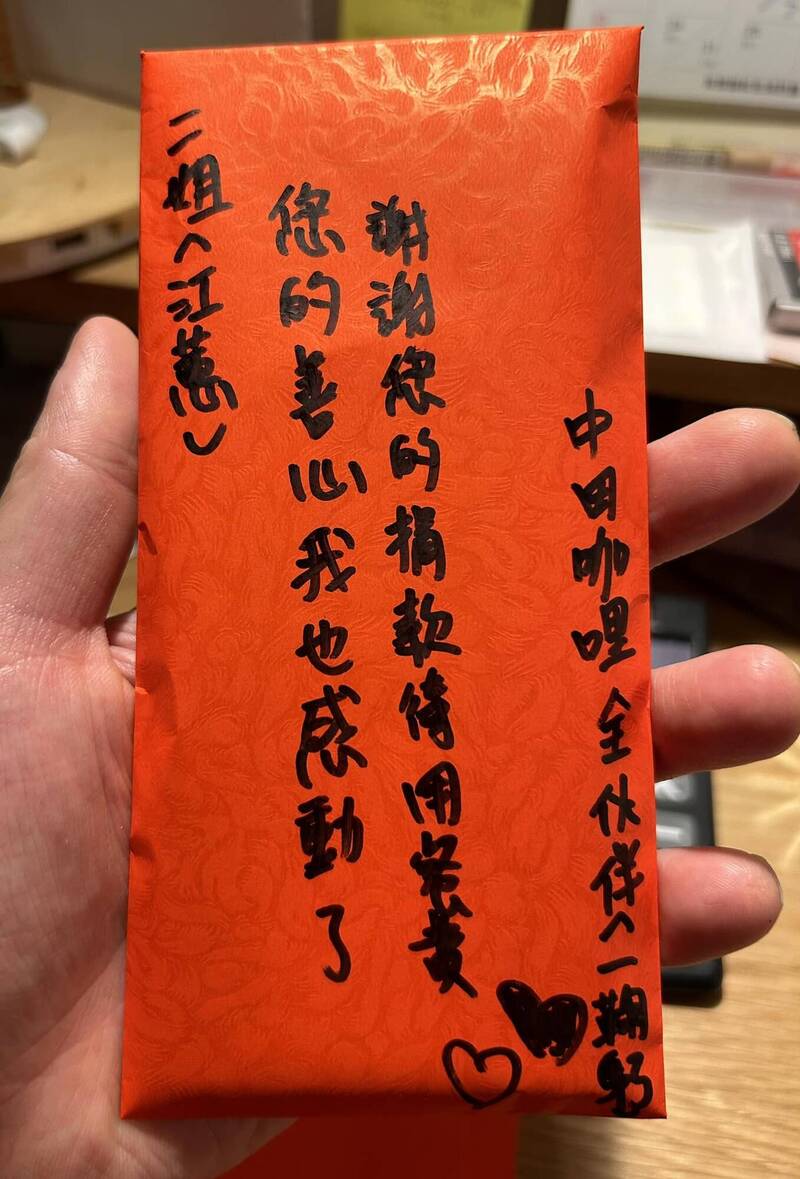 中田咖哩 全伙伴︵一鞠躬
謝謝您的捐款待用餐費
您的善心我也感動了
二姐︵江蕙︶